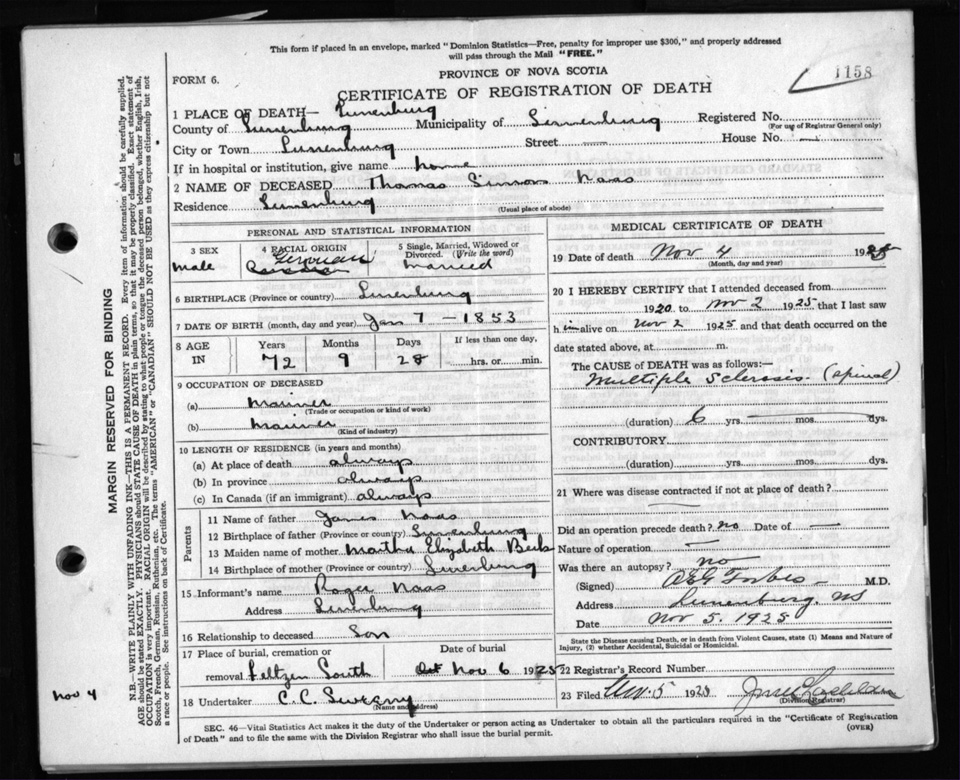 This form if placed in an envelope, marked "Dominion Statistics—Free, penalty for improper use $300," and properly addressed
will pass through the Mail "FREE."
PROVINCE OF NOVA SCOTIA
1158
FORM 6.
CERTIFICATE OF REGISTRATION OF DEATH
MARGIN RESERVED FOR BINDING
N.B.—WRITE PLAINLY WITH UNFADING INK—THIS IS A PERMANENT RECORD. Every item of information should be carefully supplied.
AGE should be stated EXACTLY. PHYSICIANS should STATE CAUSE OF DEATH in plain terms, so that it may be properly classified. Exact statement of
OCCUPATION is very important. RACIAL ORIGIN will be described by stating to what people or tongue the deceased person belonged, whether English, Irish,
Scotch, French, German, Russian, Ruthenian, etc. The terms "AMERICAN" or "CANADIAN" SHOULD NOT BE USED as they express citizenship but not
a race or people. See instructions on back of Certificate.
Nov 4
1 PLACE OF DEATH— Lunenburg
County of Lunenburg Municipality of Lunenburg Registered No.
(For use of Registrar General only)
City or Town Lunenburg Street — House No. —
If in hospital or institution, give name home
2 NAME OF DECEASED Thomas Simon Naas
Residence Lunenburg
(Usual place of abode)
PERSONAL AND STATISTICAL INFORMATION
3 SEX 4 RACIAL ORIGIN 5 Single, Married, Widowed or
Divorced. (Write the word)
Male German Married
6 BIRTHPLACE (Province or country) Lunenburg
7 DATE OF BIRTH (month, day and year) Jan 7 – 1853
8 AGE IN Years Months Days If less than one day,
72 9 28 hrs. or min.
9 OCCUPATION OF DECEASED
(a) Mariner
(Trade or occupation or kind of work)
(b) Mariner
(Kind of industry)
10 LENGTH OF RESIDENCE (in years and months)
(a) At place of death always
(b) In province always
(c) In Canada (if an immigrant) always
Parents
11 Name of father James Naas
12 Birthplace of father (Province or country) Lunenburg
13 Maiden name of mother Martha Elizabeth
14 Birthplace of mother (Province or country) Lunenburg
15 Informant's name Roger Naas
Address Lunenburg
16 Relationship to deceased Son
17 Place of burial, cremation or Date of burial
removal Feltzen South Nov 6 1925
18 Undertaker C.C.
(Name and address)
MEDICAL CERTIFICATE OF DEATH
19 Date of death Nov 4 1925
(Month, day and year)
20 I HEREBY CERTIFY that I attended deceased from
1920 to Nov 2 1925 that I last saw
him alive on Nov 2 1925 and that death occurred on the
date stated above, at m.
The CAUSE OF DEATH was as follows:—
Multiple Sclerosis (spinal)
(duration) 6 yrs mos. dys.
CONTRIBUTORY
(duration) yrs. mos. dys.
21 Where was disease contracted if not at place of death?
—
Did an operation precede death? no Date of —
Nature of operation —
Was there an autopsy? no
(Signed) Forbes M.D.
Address Lunenburg, NS
Date Nov 5. 1925
State the Disease causing Death, or in death from Violent Causes, state (1) Means and Nature of
Injury, (2) whether Accidental, Suicidal or Homicidal.
22 Registrar's Record Number
23 Filed Nov. 5 1925
(Division Registrar)
SEC. 46—Vital Statistics Act makes it the duty of the Undertaker or person acting as Undertaker to obtain all the particulars required in the "Certificate of Registration
of Death" and to file the same with the Division Registrar who shall issue the burial permit.
(OVER)